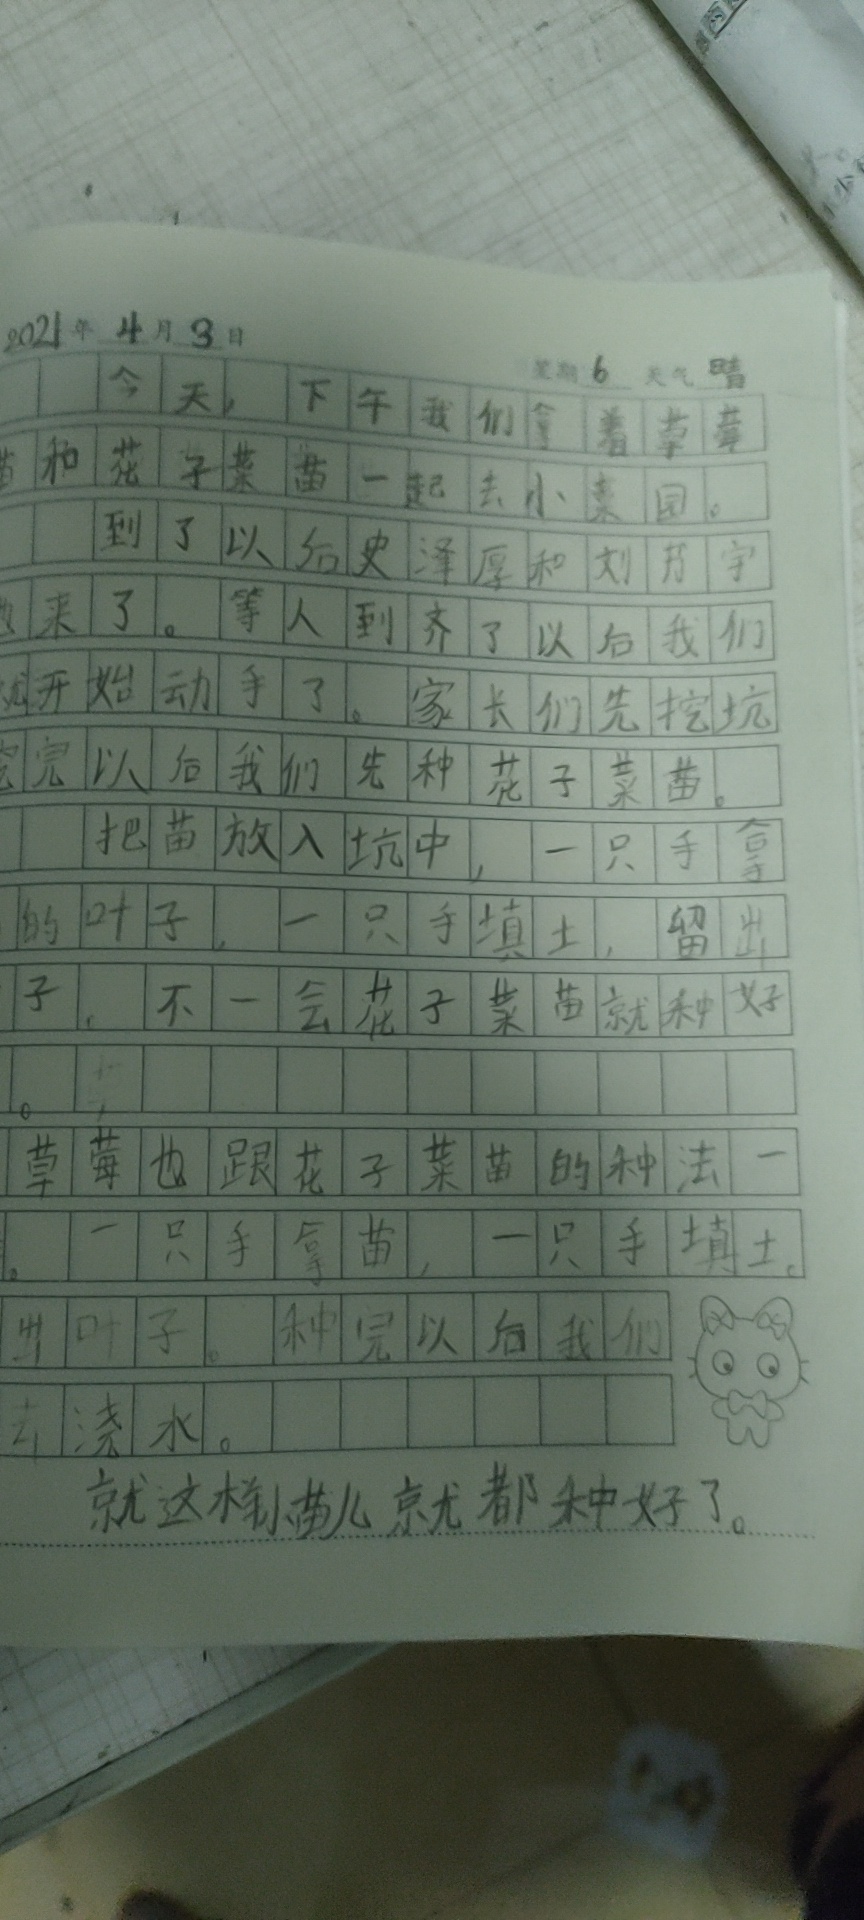 2021年 4月 3日
星期 6 天气 晴
今天，下午我们拿着草莓
苗和花子菜苗一起去小菜园。
到了以后史泽厚和刘芳宇
来了。等人到齐了以后我们
就开始动手了。家长们先挖坑
挖完以后我们先种花子菜苗。
把苗放入坑中，一只手拿
的叶子，一只手填土，留出
子，不一会花子菜苗就种好
。
草莓也跟花子菜苗的种法一
。一只手拿苗，一只手填土。
出叶子。种完以后我们
去浇水。
就这样小苗儿就都种好了。